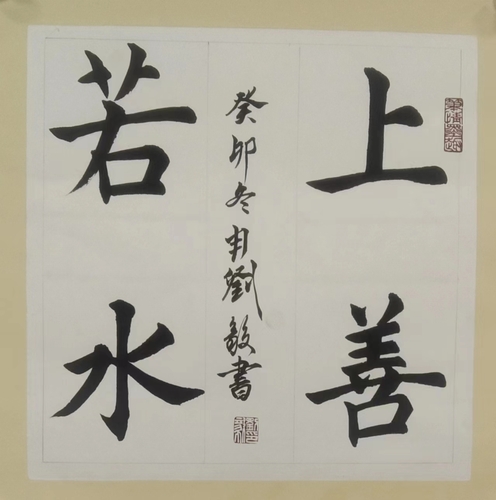 上善
若水
癸卯冬月劉毅書